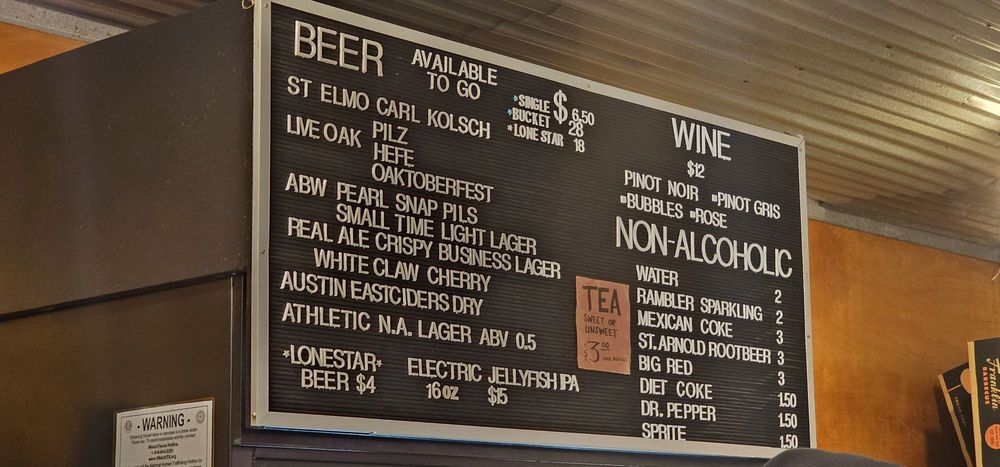 BEER
AVAILABLE
TO GO
*SINGLE $ 6.50
*BUCKET 28
*LONE STAR 18
ST ELMO CARL KOLSCH
LIVE OAK PILZ
HEFE
OAKTOBERFEST
ABW PEARL SNAP PILS
SMALL TIME LIGHT LAGER
REAL ALE CRISPY BUSINESS LAGER
WHITE CLAW CHERRY
AUSTIN EASTCIDERS DRY
ATHLETIC N.A. LAGER ABV 0.5
*LONESTAR*
BEER $4
ELECTRIC JELLYFISH IPA
16 OZ $15
WINE
$12
PINOT NOIR PINOT GRIS
BUBBLES ROSE
NON-ALCOHOLIC
WATER 2
RAMBLER SPARKLING 2
MEXICAN COKE 3
ST. ARNOLD ROOTBEER 3
BIG RED 3
DIET COKE 1.50
DR. PEPPER 1.50
SPRITE 1.50
TEA
SWEET OR
UNSWEET
$3.00
FREE REFILLS
- WARNING -
Franklin
BARBECUE